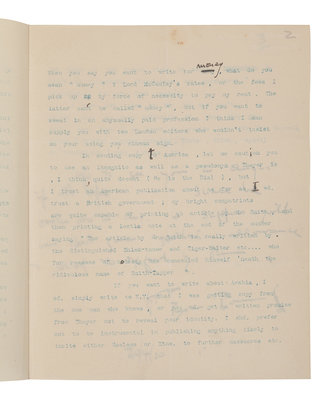 2
money
When you say you want to write for , what do you
mean " money " ? Lord McCauley's rates , or the fees I
pick up by force of necessity to pay my rent . The
latter cannot be called " money " . But if you want to
sweat in an abysmally paid profession I think I can
supply you with two London editors who wouldn't insist
on your using you vibrant sign.
In sending copy to America , let me caution you
to use an incognito as well as a pseudonym . Thayer is
, I think, quite decent ( He is the Dial ) , but I
I trust an American publication about as far as I wd.
trust a British government ; my bright compatriots
are quite capable of printing an article by
then printing a little note at the end of the number
saying " The article by is really written by
the distinguished etc.... who
for reasons has concealed himself 'neath the
ridiculous name of
If you want to write about Arabia , I
wd. simply write to N.Y. that I was getting copy from
the one man who knows , or written promise
from Thayer not to reveal your identity. I shd. prefer
not to be instrumental in publishing anything likely to
incite either or to further massacres etc.